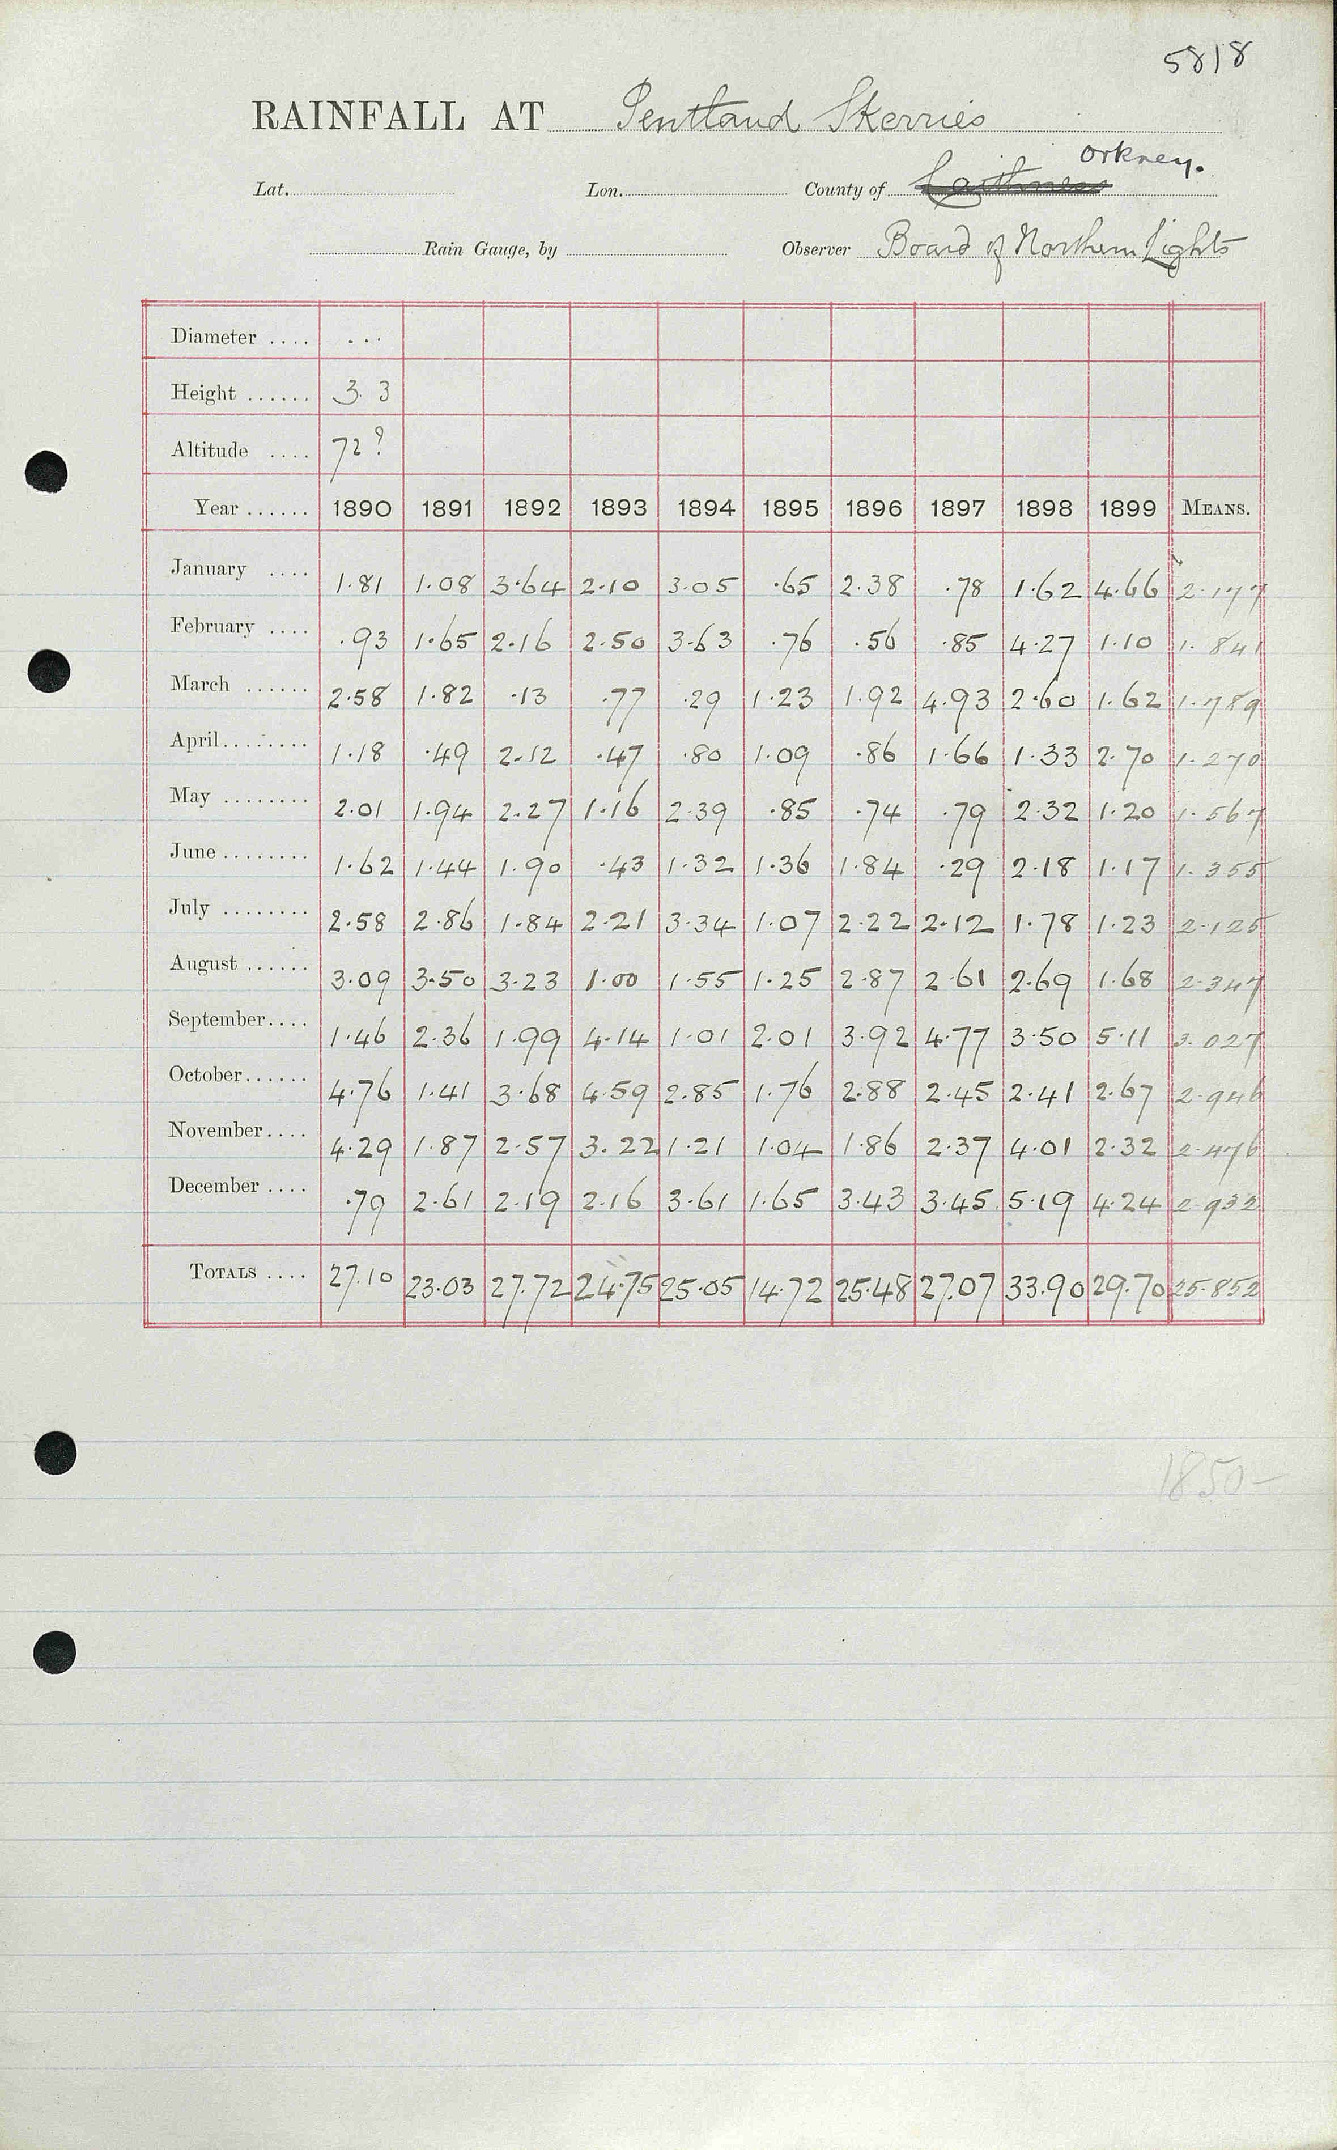 5818
RAINFALL AT Pentland Skerries
Orkney.
Lat. Lon. County of Caithness
Rain Gauge, by Observer Board of Northern Lights
Diameter .... ...
Height ...... 3. 3
Altitude .... 72?
Year ...... 1890 1891 1892 1893 1894 1895 1896 1897 1898 1899 MEANS.
January .... 1.81 1.08 3.64 2.10 3.05 .65 2.38 .78 1.62 4.66 2.177
February .... .93 1.65 2.16 2.50 3.63 .76 .56 .85 4.27 1.10 1.841
March ...... 2.58 1.82 .13 .77 .29 1.23 1.92 4.93 2.60 1.62 1.789
April ........ 1.18 .49 2.12 .47 .80 1.09 .86 1.66 1.33 2.70 1.270
May ........ 2.01 1.94 2.27 1.16 2.39 .85 .74 .79 2.32 1.20 1.567
June ........ 1.62 1.44 1.90 .43 1.32 1.36 1.84 .29 2.18 1.17 1.355
July ........ 2.58 2.86 1.84 2.21 3.34 1.07 2.22 2.12 1.78 1.23 2.125
August ...... 3.09 3.50 3.23 1.00 1.55 1.25 2.87 2.61 2.69 1.68 2.347
September.... 1.46 2.36 1.99 4.14 1.01 2.01 3.92 4.77 3.50 5.11 3.027
October...... 4.76 1.41 3.68 4.59 2.85 1.76 2.88 2.45 2.41 2.67 2.946
November.... 4.29 1.87 2.57 3.22 1.21 1.04 1.86 2.37 4.01 2.32 2.476
December .... .79 2.61 2.19 2.16 3.61 1.65 3.43 3.45 5.19 4.24 2.932
TOTALS .... 27.10 23.03 27.72 24.75 25.05 14.72 25.48 27.07 33.90 29.70 25.852
1850-